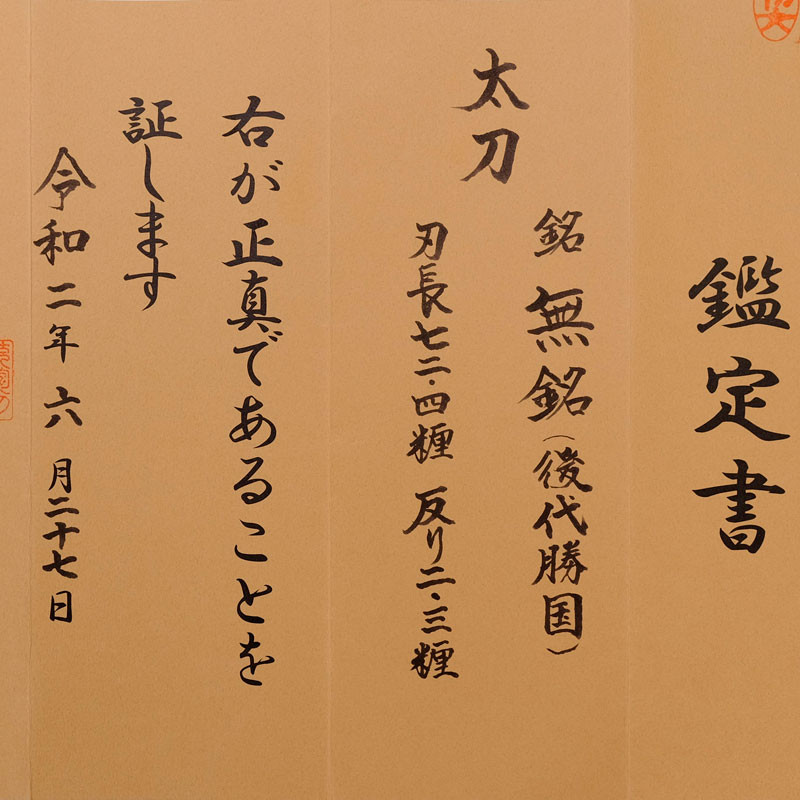 鑑定書
太刀
銘 無銘(後代勝国)
刃長七二・四糎 反り二・三糎
右が正真であることを
証します
令和二年六月二十七日